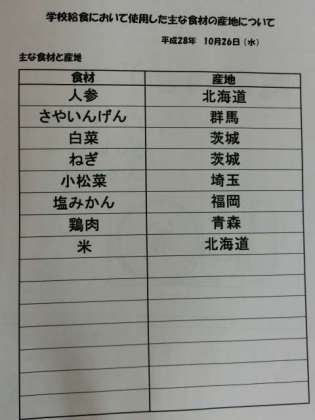 学校給食において使用した主な食材の産地について
平成28年 10月26日（水）
主な食材と産地
食材 産地
人参 北海道
さやいんげん 群馬
白菜 茨城
ねぎ 茨城
小松菜 埼玉
塩みかん 福岡
鶏肉 青森
米 北海道